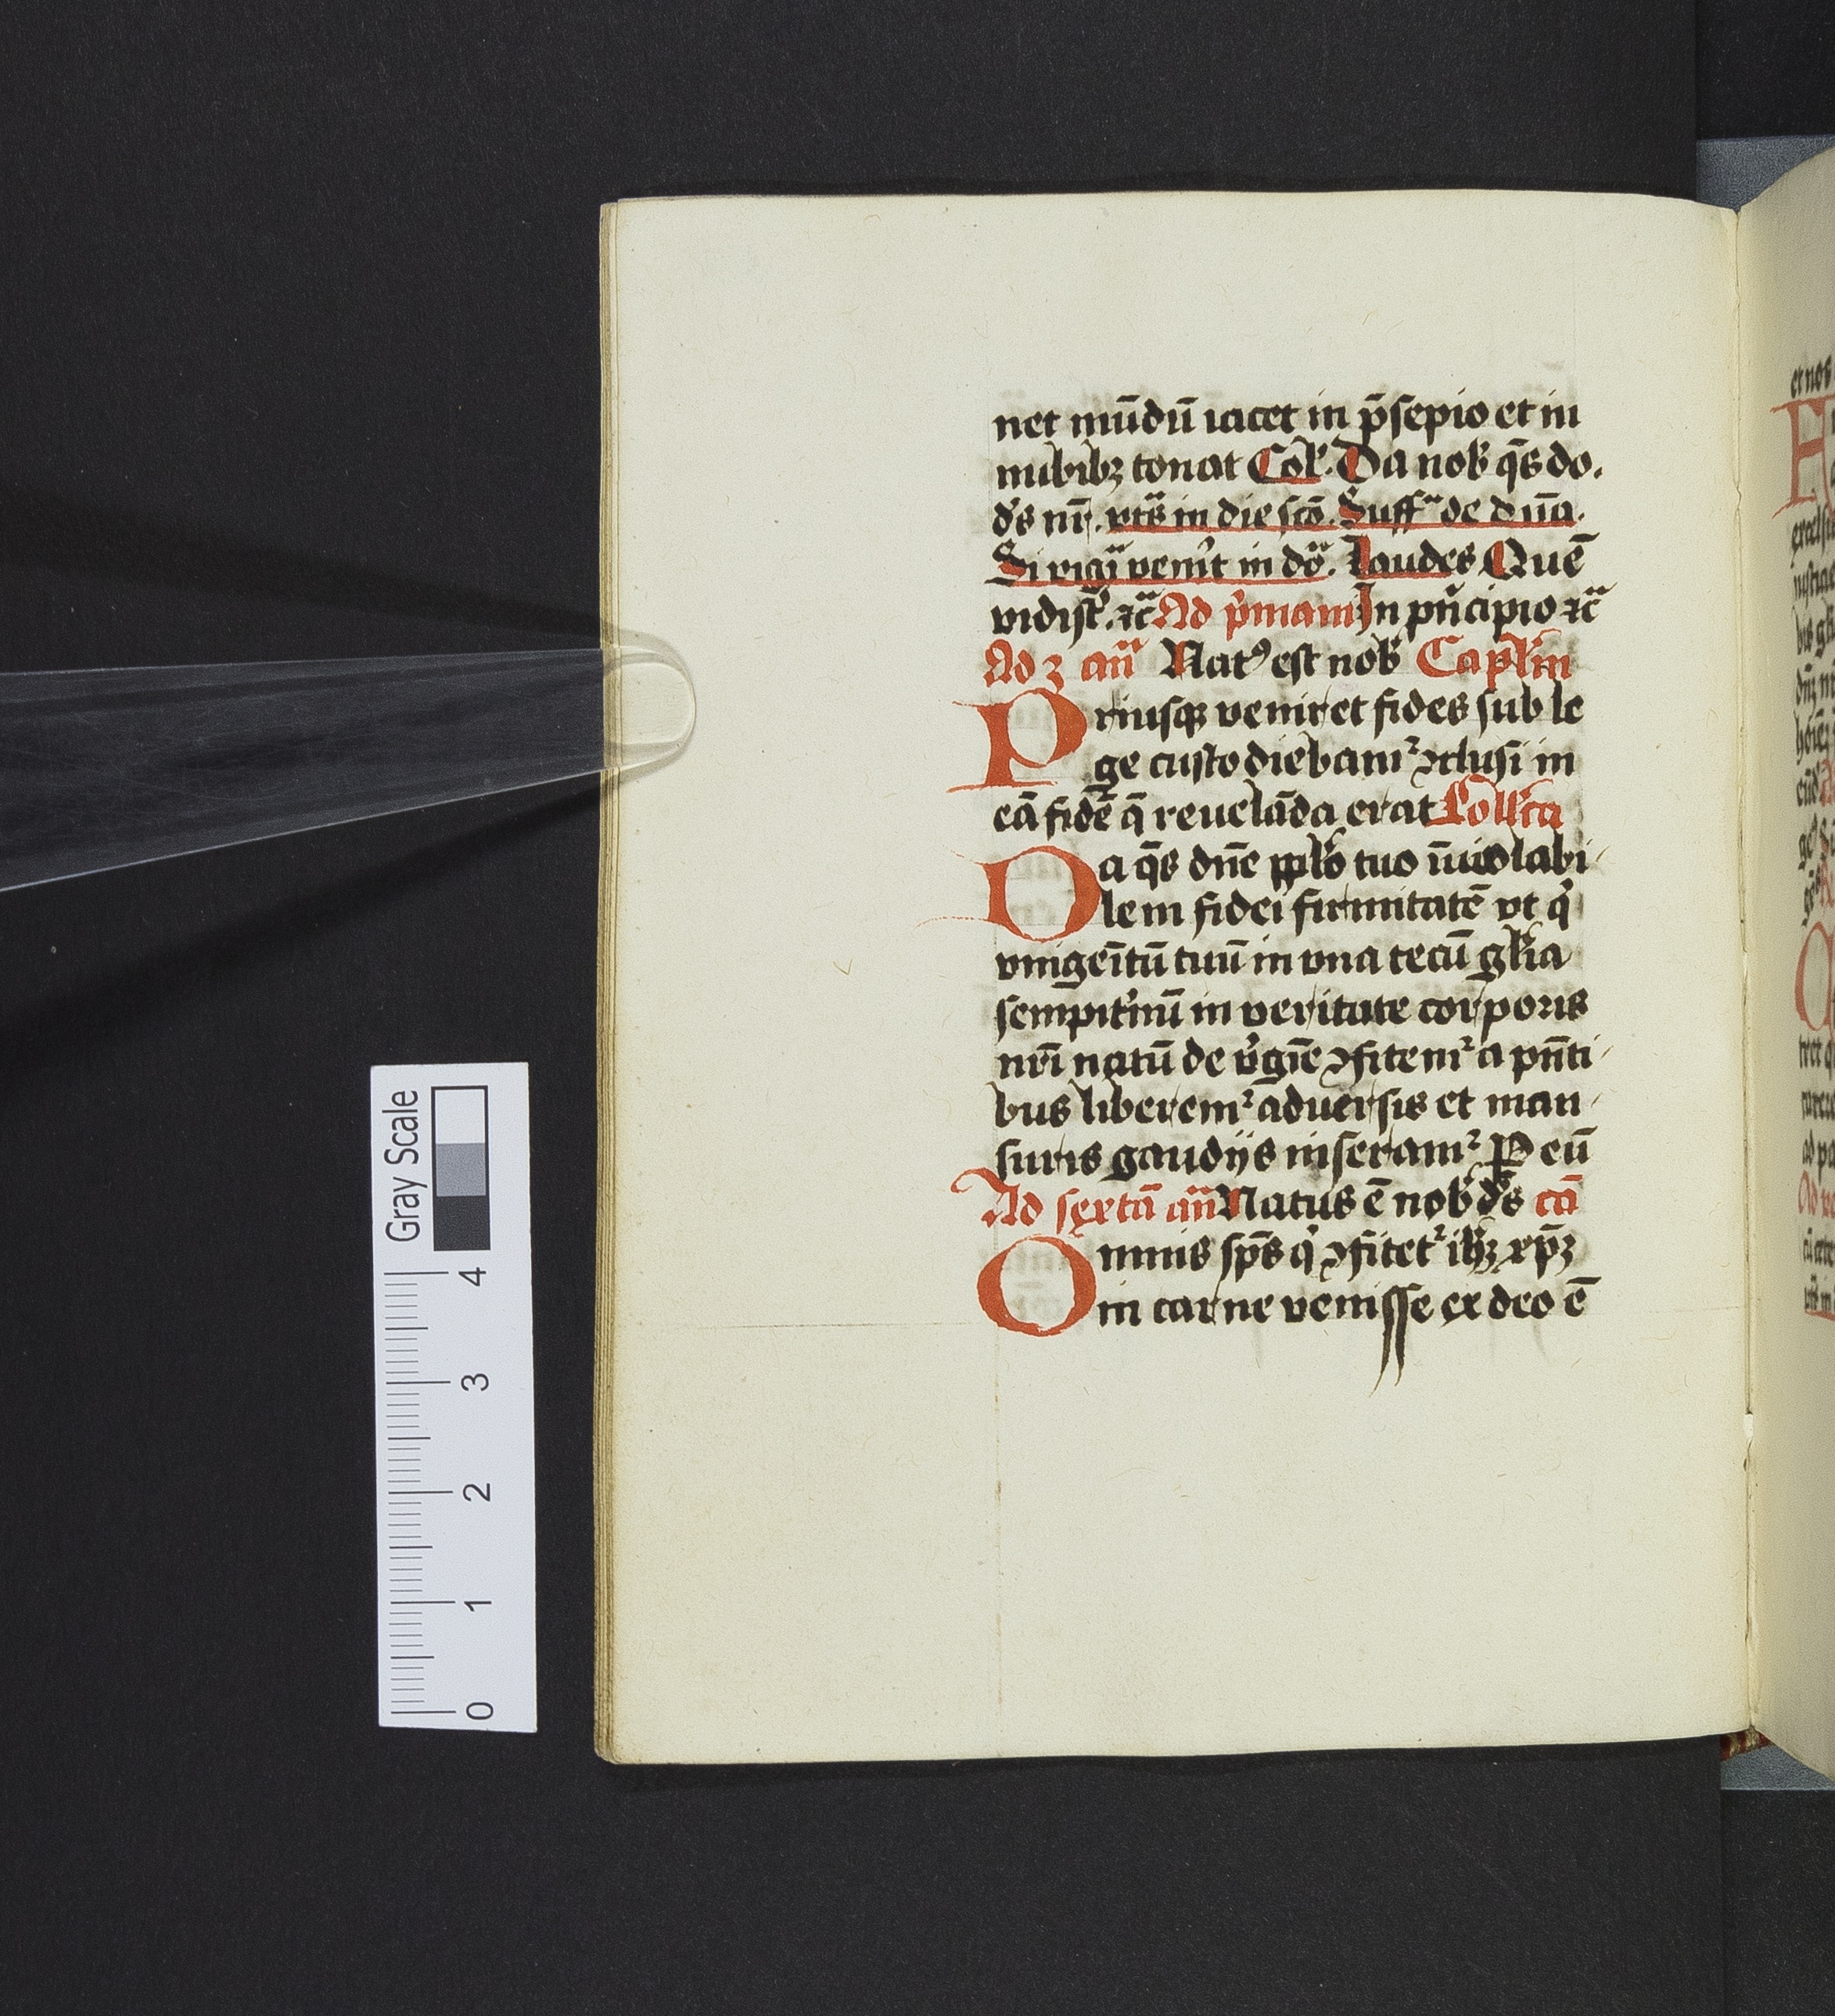 net mūdū iacet in p̄sepio et in
nubibꝫ tonat Col̛. Da nob̛ q̄s do.
ds̄ nr̄. vt sͣ in die scō. Suffͣ de dn̄a.
Si vigͣ venīt in doͣ. Laudes Quē
vidist̛. ⁊cͣ Ad p̛mam In pn̄cipio ⁊cͣ
Ad 3 anͣ Natꝰ est nob̛ Capl̛m
Priusqꝫ veniret fides sub le
ge custodiebamᷣ ꝯclusi in
eā fidē q̄ reuelāda erat Coll̛cta
Da q̄s dn̄e ppl̛o tuo īuiolabi
lem fidei firmitatē vt qͥ
vnigeītū tuū in vna tecū gl̛ia
sempit̛nū in veritate corporis
nr̄i natū de v̛gīe ꝯfitemᷣ a pn̄ti
bus liberemᷣ aduersis et man
suris gaudijs inseramᷣ P eū
Ad sextā anͣ Natus ē nob̛ ds̄ ca̅
Omnis sp̄s qͥ ꝯfitetᷣ ih̄ꝫ xp̄ꝫ
in carne venisse ex deo ē
Gray Scale
0 1 2 3 4